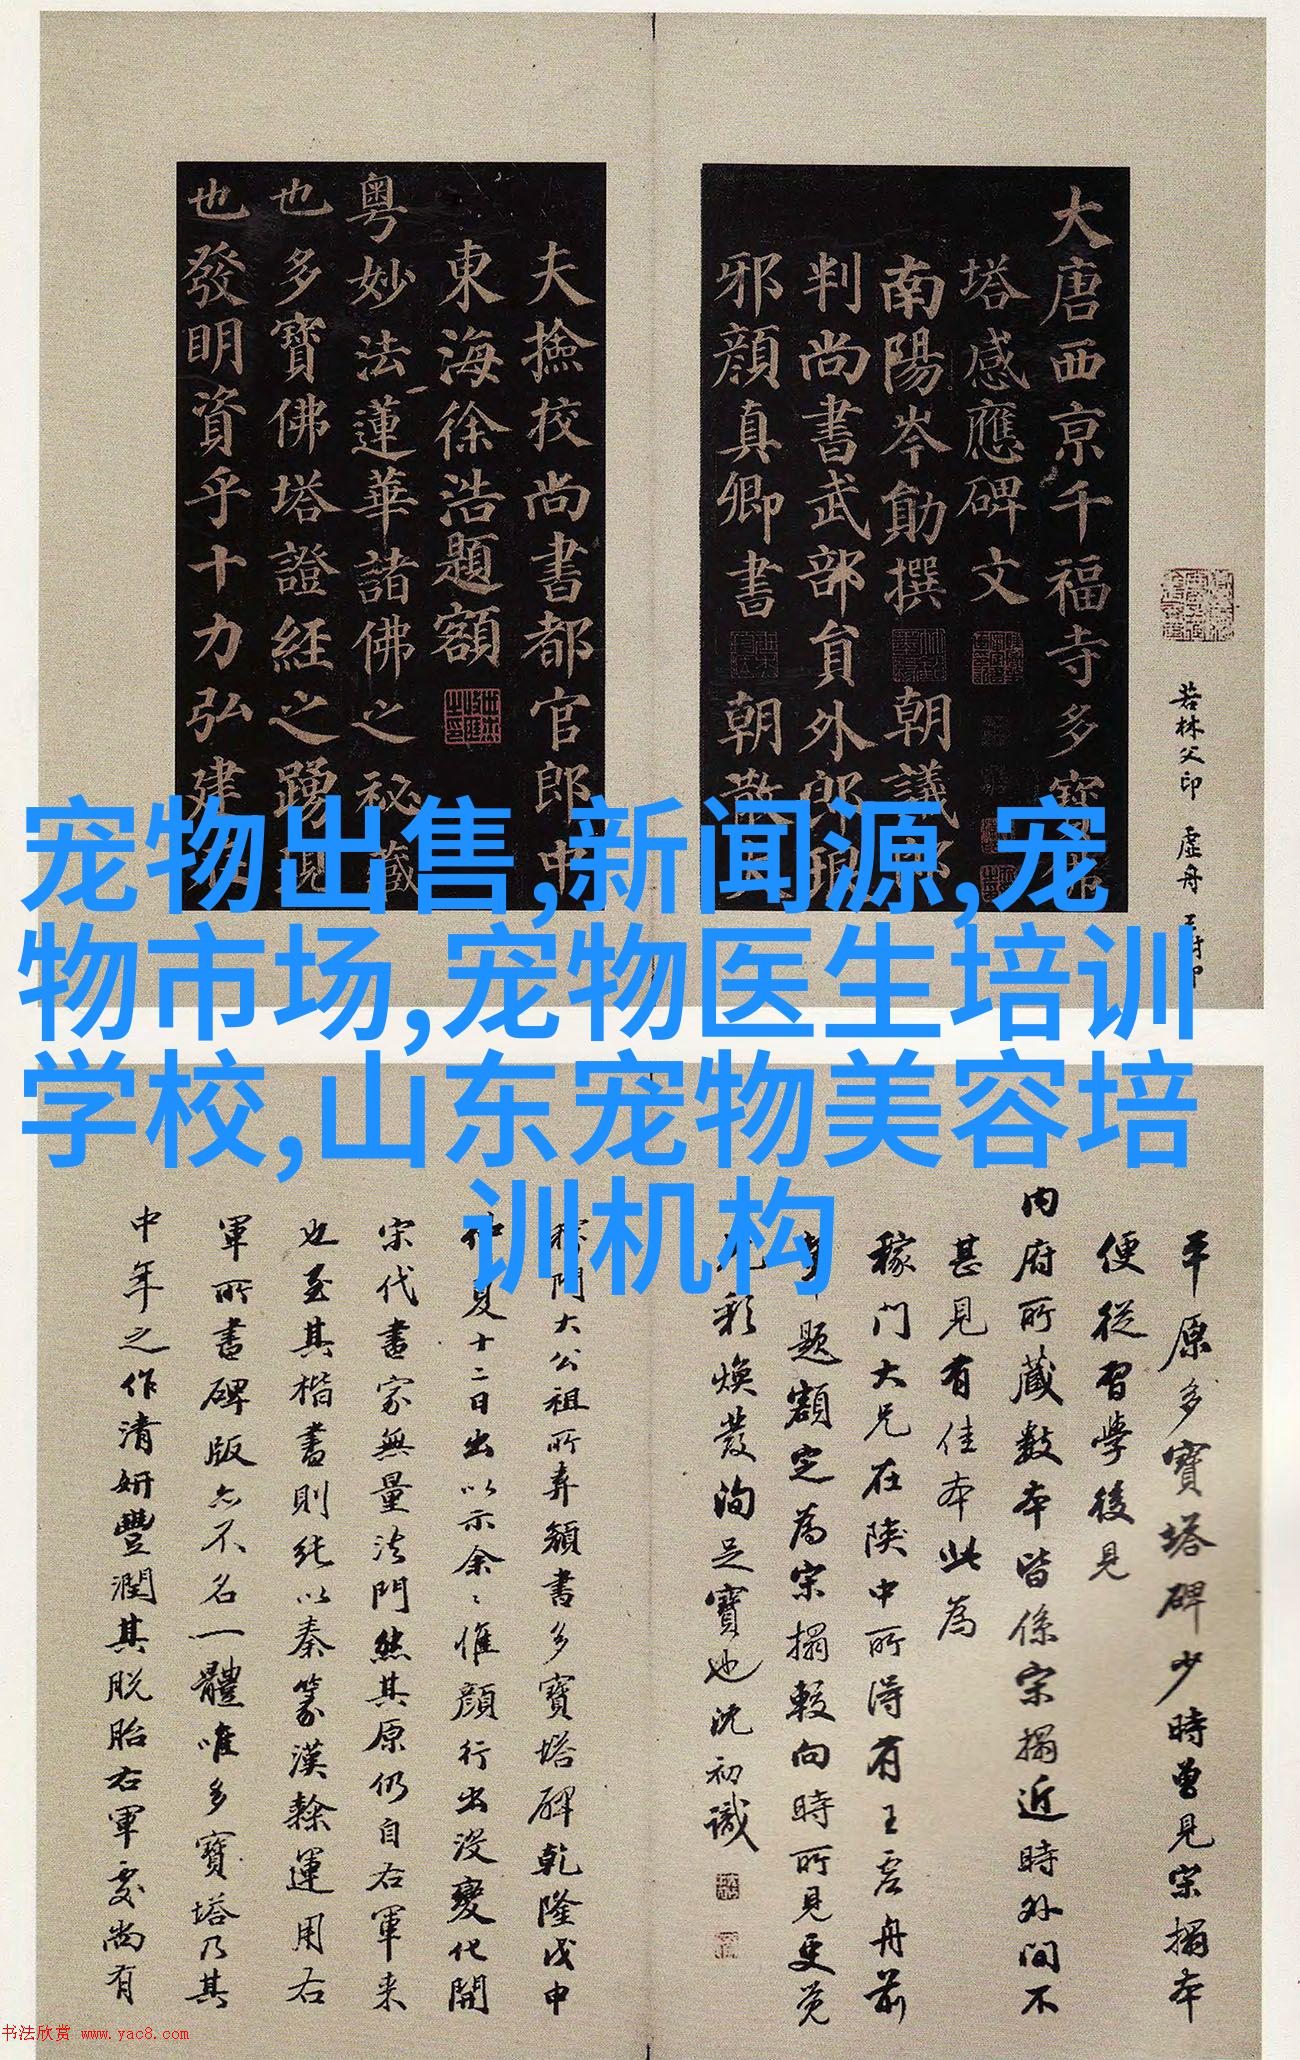 大唐西京千福寺多寶佛
塔感應碑文
南陽岑勛撰 朝議郎
判尚書武部員外郎琅
邪顏真卿書 朝散大
夫撿校尚書都官郎中
東海徐浩題額
粵妙法蓮華諸佛之祕藏
也多寶佛塔證經之踴現
也發明資乎十力弘建
若林父印 虛舟
宠物出售,新闻源,宠
物市场,宠物医生培训
学校,山东宠物美容培
训机构
平原多寶塔碑少時曾見宋搨本
便從習學後見
内府所藏數本皆係宋搨近時外间不
甚見有佳本此為
稼门大兄在陕中所得有王虛舟前
題額定為宋搨較向時所見更覚
彩煥發洵足寶也沈初識
門大公祖所弆額書多寶塔碑乾隆戊申
仲夏十二日出以示余〻惟顔行出没變化開
宋代書家無量法門然其原仍自右軍来
也至其楷書則純以秦篆漢隸運用右
軍所書碑版亦不名一體唯多寶塔乃其
中年之作清妍豐潤其脱胎右軍處尚有
书法欣赏 www.yac8.com